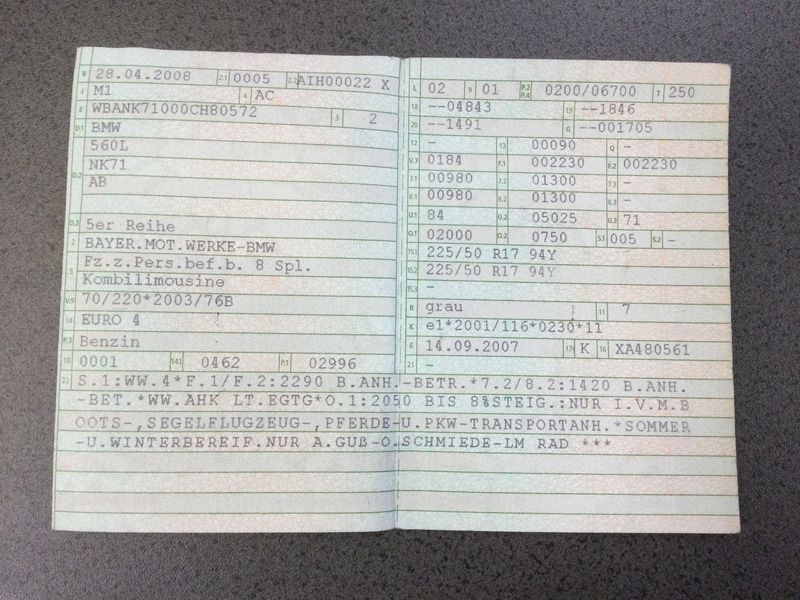 B 28.04.2008 2.1 0005 2.2 AIH00022 X
J M1 4 AC
E WBANK71000CH80572 3 2
D.1 BMW
560L
D.2 NK71
AB
D.3 5er Reihe
2 BAYER.MOT.WERKE-BMW
5 Fz.z.Pers.bef.b. 8 Spl.
Kombilimousine
V.9 70/220*2003/76B
14 EURO 4
P.3 Benzin
10 0001 14.1 0462 P.1 02996
L 02 9 01 P.2 P.4 0200/06700 T 250
18 --04843 19 --1846
20 --1491 G --001705
12 - 13 00090 Q -
V.7 0184 F.1 002230 F.2 002230
7.1 00980 7.2 01300 7.3 -
8.1 00980 8.2 01300 8.3 -
U.1 84 U.2 05025 U.3 71
O.1 02000 O.2 0750 S.1 005 S.2 -
15.1 225/50 R17 94Y
15.2 225/50 R17 94Y
15.3 -
R grau 11 7
K e1*2001/116*0230*11
6 14.09.2007 17 K 16 XA480561
21 -
22 S.1:WW.4*F.1/F.2:2290 B.ANH.-BETR.*7.2/8.2:1420 B.ANH.
-BET.*WW.AHK LT.EGTG*O.1:2050 BIS 8%STEIG.:NUR I.V.M.B
OOTS-,SEGELFLUGZEUG-,PFERDE-U.PKW-TRANSPORTANH.*SOMMER
-U.WINTERBEREIF.NUR A.GUß-O.SCHMIEDE-LM RAD ***